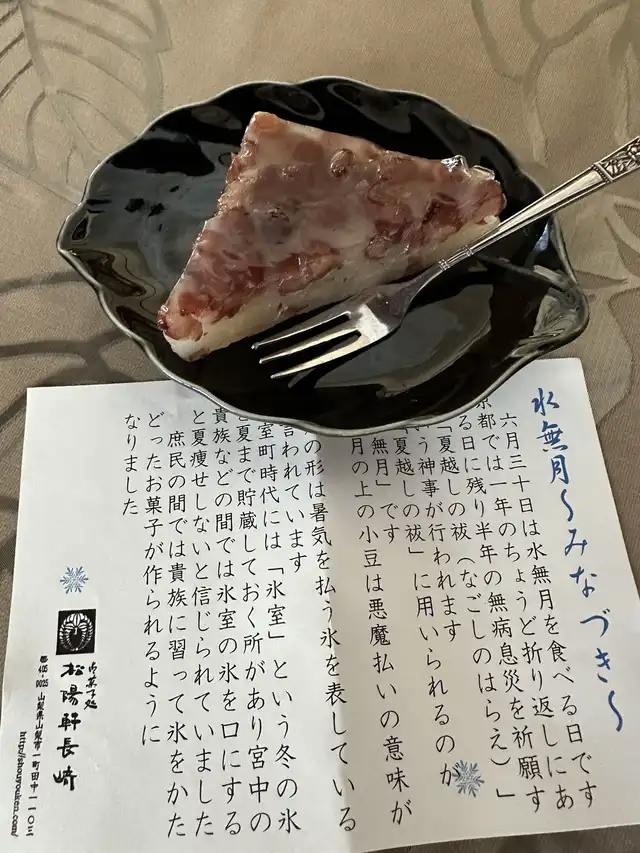 水無月～みなづき～
六月三十日は水無月を食べる日です
京都では一年のちょうど折り返しにあ
る日に残り半年の無病息災を祈願す
「夏越しの祓（なごしのはらえ）」
いう神事が行われます
「夏越しの祓」に用いられるのが
無月」です
月の上の小豆は悪魔払いの意味が
の形は暑気を払う氷を表している
言われています
室町時代には「氷室」という冬の氷
夏まで貯蔵しておく所があり宮中の
貴族などの間では氷室の氷を口にする
と夏痩せしないと信じられていました
庶民の間では貴族に習って氷をかた
どったお菓子が作られるように
なりました
御菓子処
松陽軒長崎
〒405-0025 山梨県山梨市一町田中一一〇三
http://shouyouken.com/